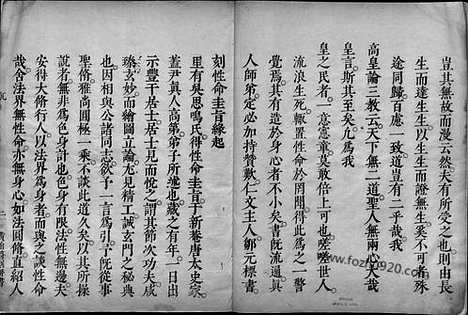 豈其無故而漫云然夫有所受之也則由長
生而達生生以生生而證無生奚不可者殊
途同歸百慮一致道豈有二乎哉我
高皇論三教云天下無二道聖人無兩心大哉
皇言斯其至矣凡為我
皇之民者一意憲章莫敢倍上可也嗟嗟世人
流浪生死輙置性命於罔聞得此為之一警
覺焉其有濟於身心者不小矣書既流通異
人師弟定必加持贊歎仁文主人鄒元標書
刻性命圭旨緣起
里有吳思鳴氏得性命圭旨于新菴唐太史家
蓋尹真人高第弟子所述也歲之有年一日出
示豐干居士居士見而悅之謂其節次功夫咸
臻玄妙而繪圖立論尤見精工誠玄門之秘典
也因與公諸同志欲予一言為引予既從事
聖脩雅尚圓極一乘不談此道久矣以其所操
說者無非為色身計也色身有限法性無邊夫
安得大脩行人以法界為身者而與之談性命
哉舍法界無性命亦無身心如法圓脩直紹人
foxzo920.com